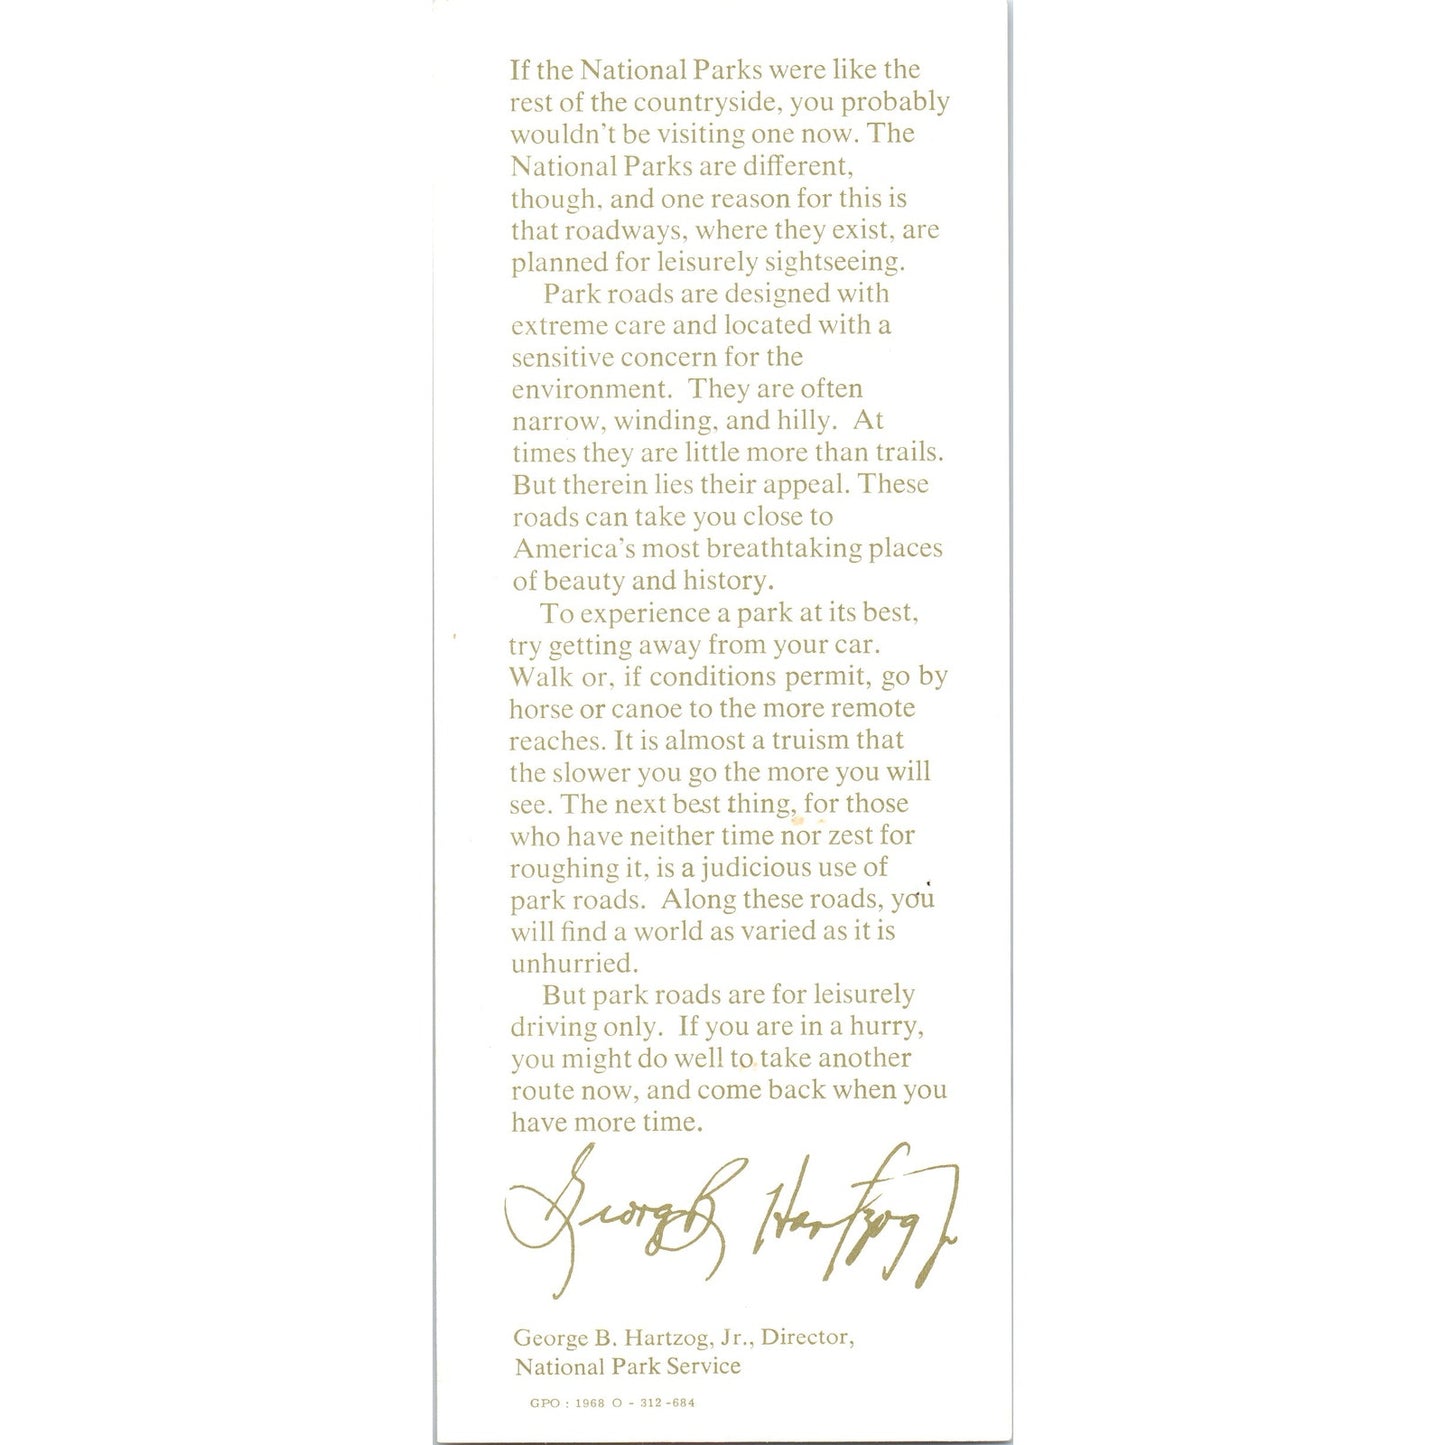 If the National Parks were like the
rest of the countryside, you probably
wouldn't be visiting one now. The
National Parks are different,
though, and one reason for this is
that roadways, where they exist, are
planned for leisurely sightseeing.
Park roads are designed with
extreme care and located with a
sensitive concern for the
environment. They are often
narrow, winding, and hilly. At
times they are little more than trails.
But therein lies their appeal. These
roads can take you close to
America's most breathtaking places
of beauty and history.
To experience a park at its best,
try getting away from your car.
Walk or, if conditions permit, go by
horse or canoe to the more remote
reaches. It is almost a truism that
the slower you go the more you will
see. The next best thing, for those
who have neither time nor zest for
roughing it, is a judicious use of
park roads. Along these roads, you
will find a world as varied as it is
unhurried.
But park roads are for leisurely
driving only. If you are in a hurry,
you might do well to take another
route now, and come back when you
have more time.
George B Hartzog Jr
George B. Hartzog, Jr., Director,
National Park Service
GPO : 1968 O - 312-684